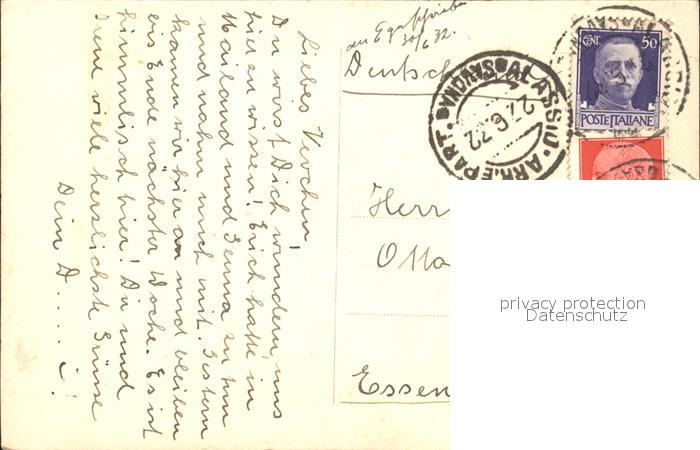 Liebes Verchen,
Du wirst Dich wundern, uns
hier zu wissen! Erich hatte in
Mailand und Genua zu tun
und nahm mich mit. Gestern
kamen wir hier an und bleiben
bis Ende nächster Woche. Es ist
himmlisch hier! Du und
viele herzlichste Grüsse
Dein D.....
30/6 32.
Deutsch
ALASSIO ARR. E PART.
27.6.32
CENT. 50
POSTE ITALIANE
Herr
Otto
Essen
privacy protection
Datenschutz